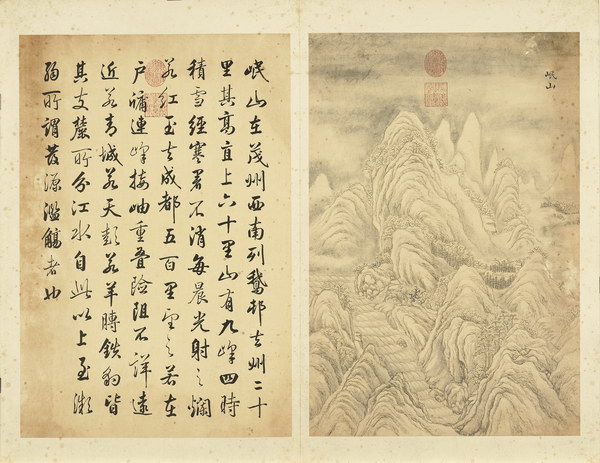 岷山
岷山在茂州西南列鵝邨去州二十
里其高直上六十里山有九峰四時
積雪經寒暑不消每晨光射之爛
若紅玉去成都五百里望之若在
戶牖連峰接岫重疊險阻不詳遠
近若青城若天彭若羊膊鐵豹皆
其支麓所分江水自此以上至微
弱所謂發源濫觴者也